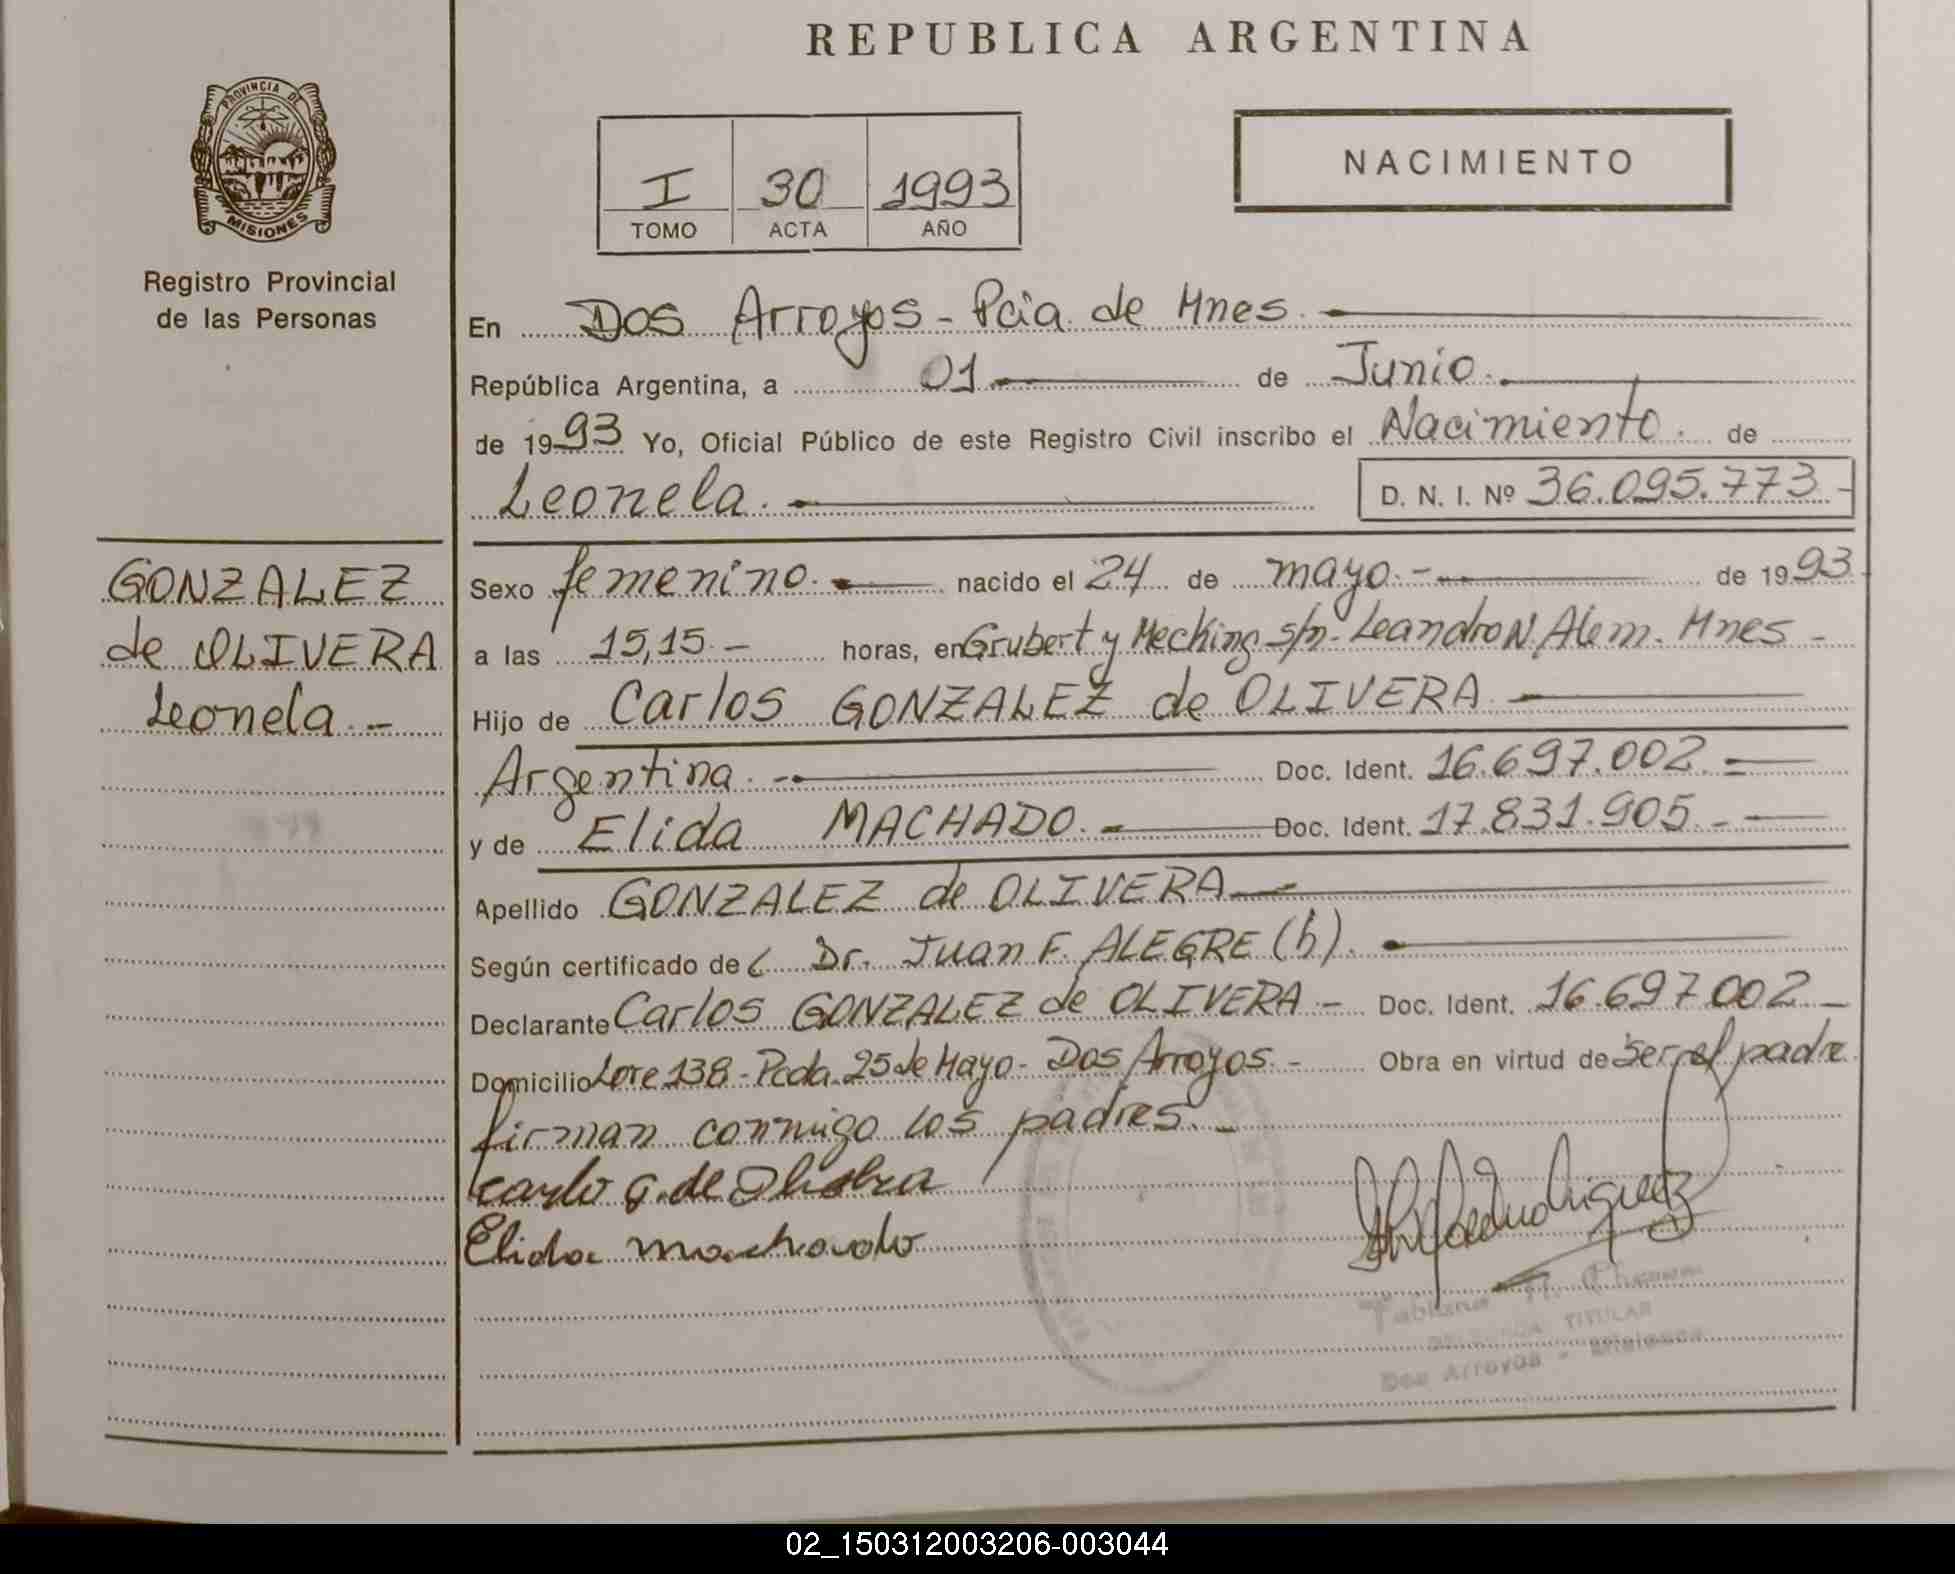 REPUBLICA ARGENTINA
PROVINCIA DE
MISIONES
Registro Provincial
de las Personas
I 30 1993
TOMO ACTA AÑO
NACIMIENTO
En Dos Arroyos - Pcia de Mnes.
República Argentina, a 01 de Junio.
de 1993 Yo, Oficial Público de este Registro Civil inscribo el Nacimiento. de
Leonela. D. N. I. Nº 36.095.773.-
GONZALEZ
de OLIVERA
Leonela.-
Sexo femenino. nacido el 24 de mayo.- de 1993
a las 15,15.- horas, en Grubert y Mecking s/n- Leandro N. Alem. Mnes -
Hijo de Carlos GONZALEZ de OLIVERA
Argentina.- Doc. Ident. 16.697.002.-
y de Elida MACHADO.- Doc. Ident. 17.831.905.-
Apellido GONZALEZ de OLIVERA
Según certificado de Dr. Juan F. ALEGRE (h).
Declarante Carlos GONZALEZ de OLIVERA - Doc. Ident. 16.697.002 -
Domicilio Lote 138 - Pcda. 25 de Mayo - Dos Arroyos.- Obra en virtud de ser el padre
firman conmigo los padres.-
Carlo G. de Olivera
Elida Machado
TITULAR
Dos Arroyos - Misiones
02_150312003206-003044